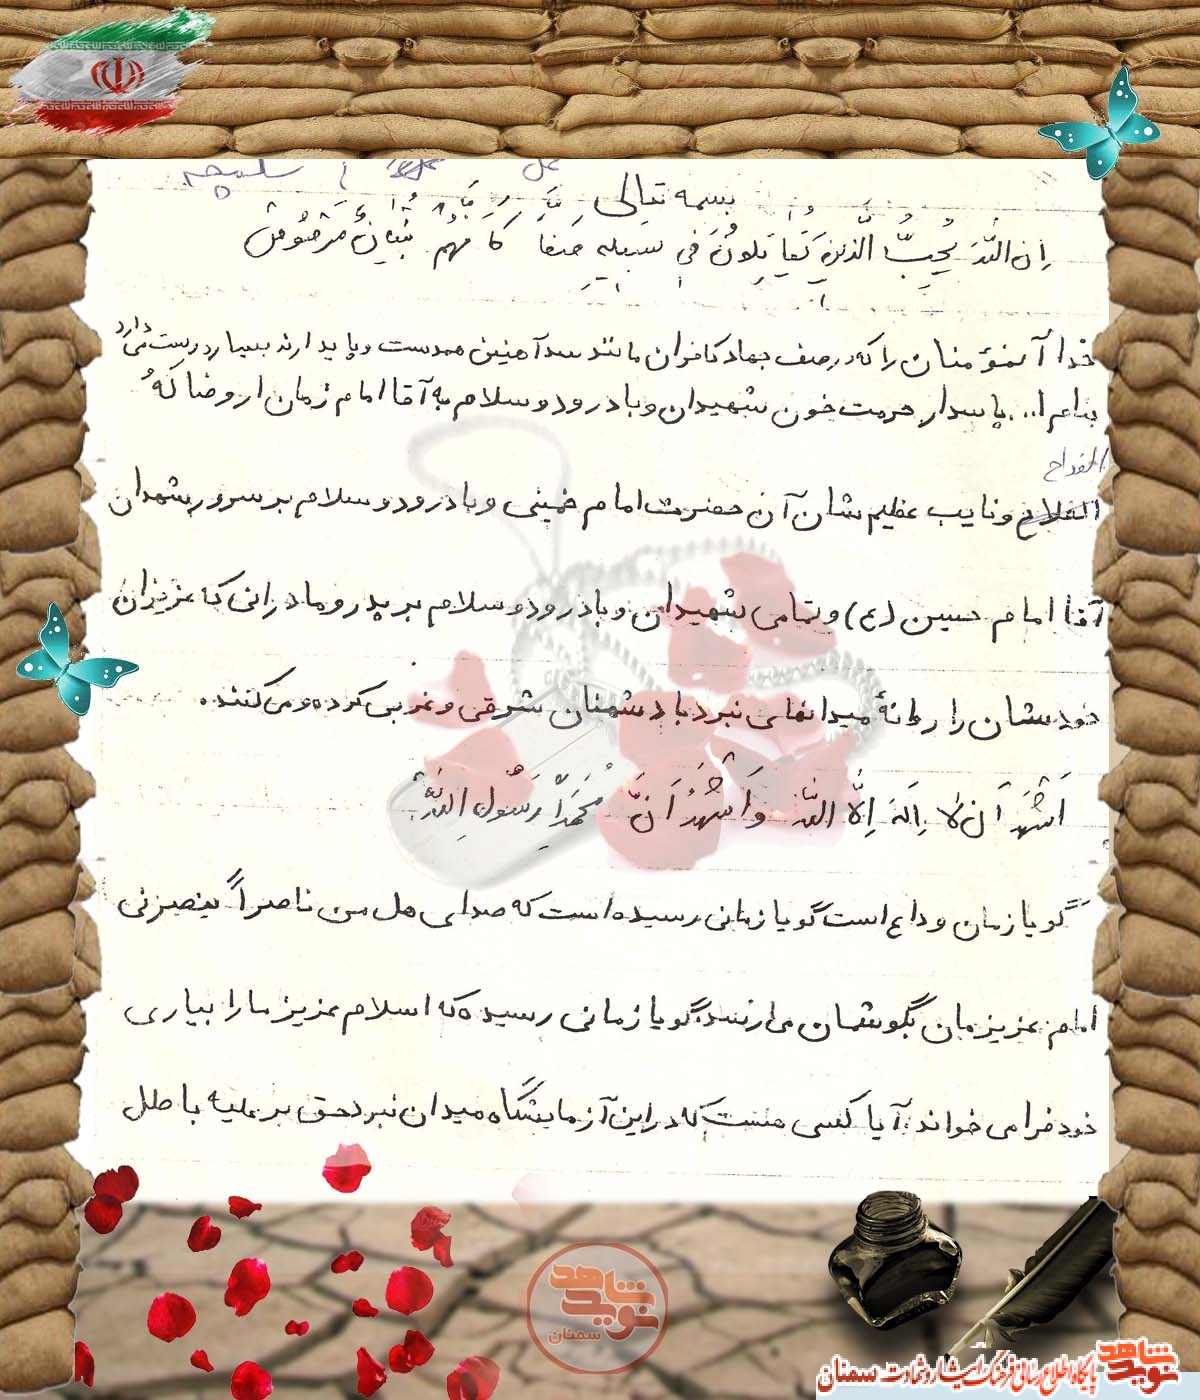 شلمچه
بسمه تعالی
اِن اللَّهَ یُحِبُّ الَّذینَ یُقاتِلونَ فی سَبیلِهِ صَفاً کَاَنَّهُم بُنیانٌ مَرصُوصٌ
خدا آن مؤمنان را که در صف جهاد کافران مانند سد آهنین همدست و پایدارند بسیار دوست می‌دارد
بنام ا... پاسدار حرمت خون شهیدان و با درود و سلام به آقا امام زمان ارواحنا له
الفداء
و نایب عظیم شان آن حضرت امام خمینی و با درود و سلام بر سرور شهیدان
آقا امام حسین (ع) و تمامی شهیدان و با درود و سلام بر پدر و مادرانی که عزیزان
خودشان را روانهٔ میدانهای نبرد با دشمنان شرقی و غربی کرده و می کنند.
اَشهَدُ اَن لا اِلهَ اِلَّا اللَّه وَ اَشهَدُ اَنَّ مُحَمَّداً رَسُولُ اللَّه
گویا زمان وداع است گویا زمانی رسیده است که صدای هل من ناصراً ینصرنی
امام عزیزمان بگوشمان می‌رسد. گویا زمانی رسیده که اسلام عزیز ما را بیاری
خود فرا می خواند. آیا کسی هست که در این آزمایشگاه میدان نبرد حق بر علیه باطل
نوید شاهد
سمنان
نوید شاهد
پایگاه اطلاع رسانی فرهنگ ایثار و شهادت سمنان